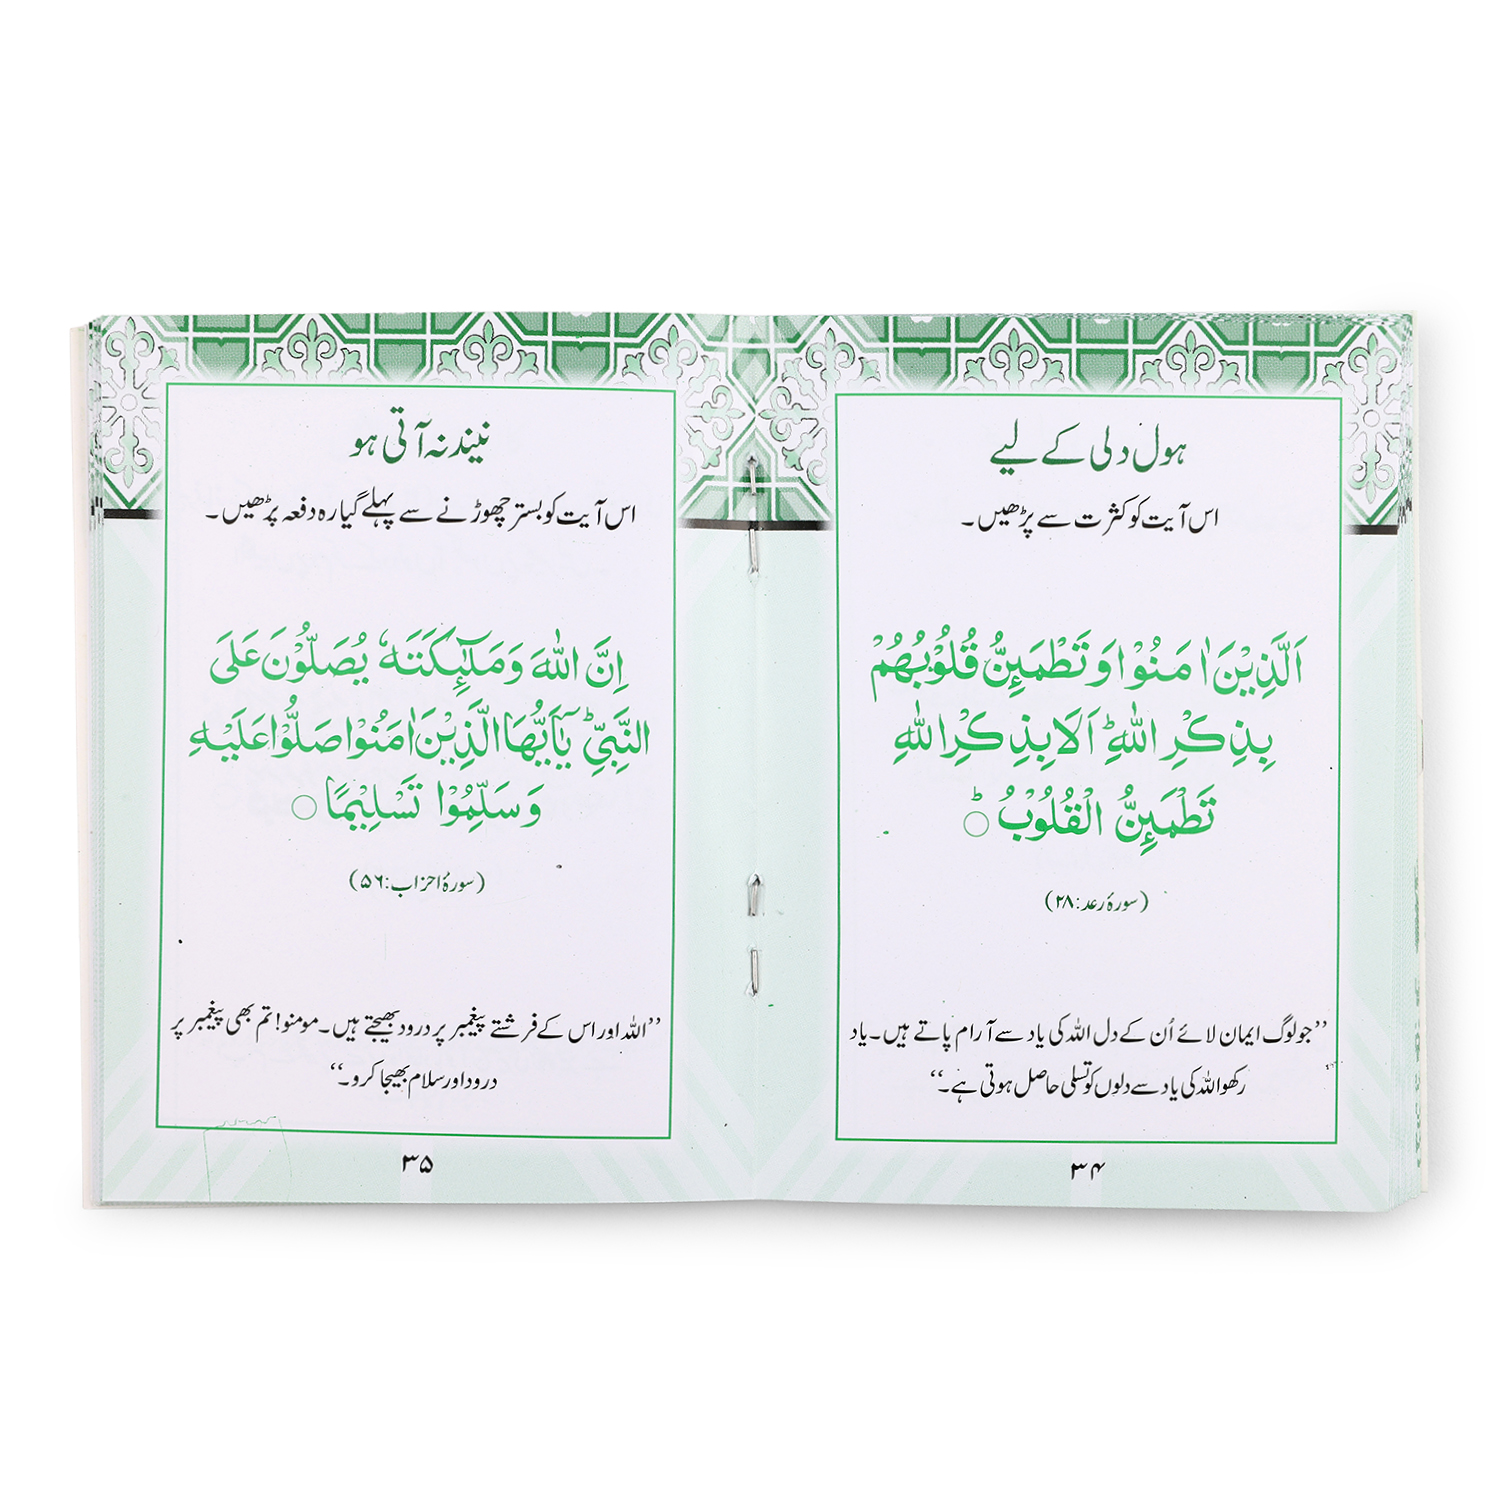 ہول دلی کے لیے
اس آیت کو کثرت سے پڑھیں۔
اَلَّذِيْنَ اٰمَنُوْا وَتَطْمَئِنُّ قُلُوْبُهُمْ
بِذِكْرِ اللّٰهِ ؕ اَلَا بِذِكْرِ اللّٰهِ
تَطْمَئِنُّ الْقُلُوْبُ ○ؕ
(سورۂ رعد: ۲۸)
’’جو لوگ ایمان لائے اُن کے دل اللہ کی یاد سے آرام پاتے ہیں۔ یاد
رکھو اللہ کی یاد سے دلوں کو تسلی حاصل ہوتی ہے۔‘‘
۳۴
نیند نہ آتی ہو
اس آیت کو بستر چھوڑنے سے پہلے گیارہ دفعہ پڑھیں۔
اِنَّ اللّٰهَ وَمَلٰٓئِكَتَهٗ يُصَلُّوْنَ عَلَى
النَّبِيِّ ؕ يٰٓاَيُّهَا الَّذِيْنَ اٰمَنُوْا صَلُّوْا عَلَيْهِ
وَسَلِّمُوْا تَسْلِيْمًا ○
(سورۂ احزاب: ۵۶)
’’اللہ اور اس کے فرشتے پیغمبر پر درود بھیجتے ہیں۔ مومنو! تم بھی پیغمبر پر
درود اور سلام بھیجا کرو۔‘‘
۳۵